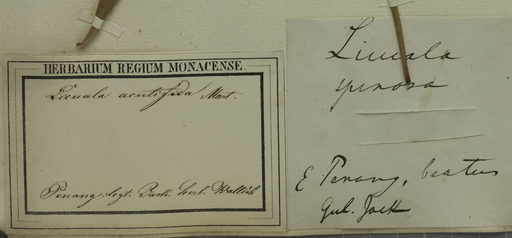 HERBARIUM REGIUM MONACENSE.
Licuala acutifida Mart.
Penang. legt. Jack. herb. Wallich
Licuala
spinosa
E Penang, beatus
Gul. Jack